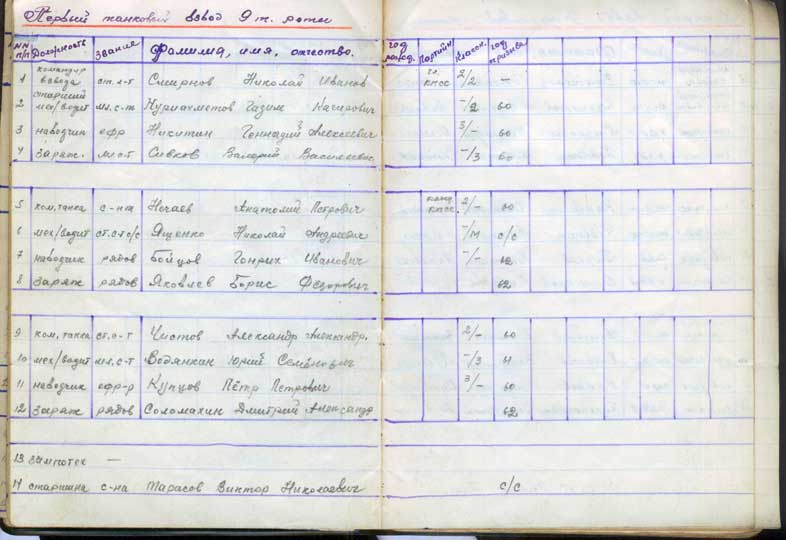 Первый танковый взвод 9 т. роты
NN п/п Должность Звание Фамилия, имя, отчество. год рожд. Партийн Классн. год призыва
1 командир взвода ст. л-т Смирнов Николай Иванов чл. КПСС 2/2 —
2 старший мех/водит мл. с-т Нуриахметов Газим Кагирович -/2 60
3 наводчик ефр Никитин Геннадий Алексеевич 3/- 60
4 заряж. мл. с-т Сивков Валерий Васильевич -/3 60
5 ком. танка с-на Нечаев Анатолий Петрович канд. КПСС. 2/- 60
6 мех/водит ст. с-т с/с Ященко Николай Андреевич -/М с/с
7 наводчик рядов Бойцов Генрих Иванович -/- 62
8 заряж рядов Яковлев Борис Федорович 62
9 ком. танка ст. с-т Чистов Александр Александр. 2/- 60
10 мех/водит мл. с-т Водянкан Юрий Семёнович -/3 61
11 наводчик ефр-р Купцов Пётр Петрович 3/- 60
12 заряж рядов Соломахин Дмитрий Александр 62
13 зампотех —
14 старшина с-на Тарасов Виктор Николаевич с/с